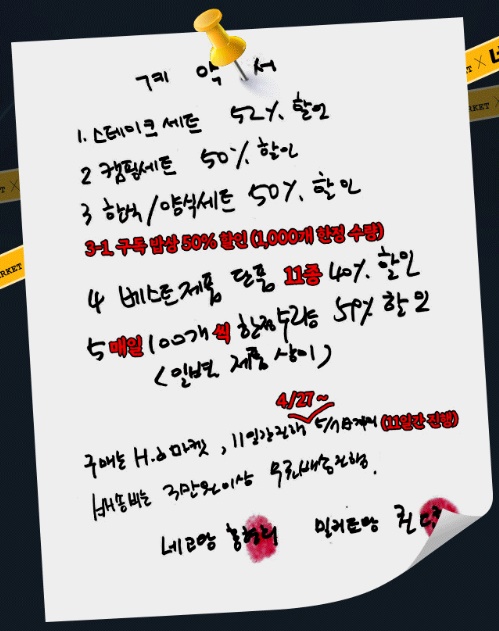 계약서
1. 스테이크 세트 52% 할인
2 캠핑세트 50% 할인
3 한식/양식세트 50% 할인
3-1. 구독 밥상 50% 할인 (1,000개 한정 수량)
4 베스트 제품 단품 11종 40% 할인
5 매일 100개씩 한정수량 59% 할인
(일별 제품 상이)
4/27 ~
구매는 H.O마켓, 11일간진행 5/7까지 (11일간 진행)
배송비는 3만원이상 무료배송진행.
네고왕 밀키트왕
MARKET